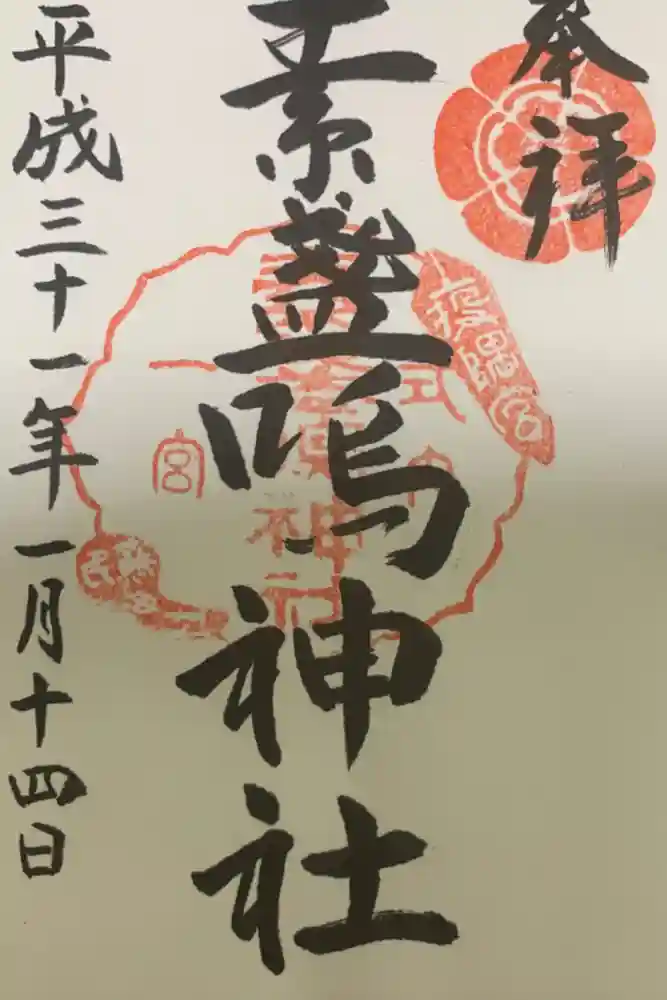 奉拝
素盞嗚神社
平成三十一年一月十四日
宮